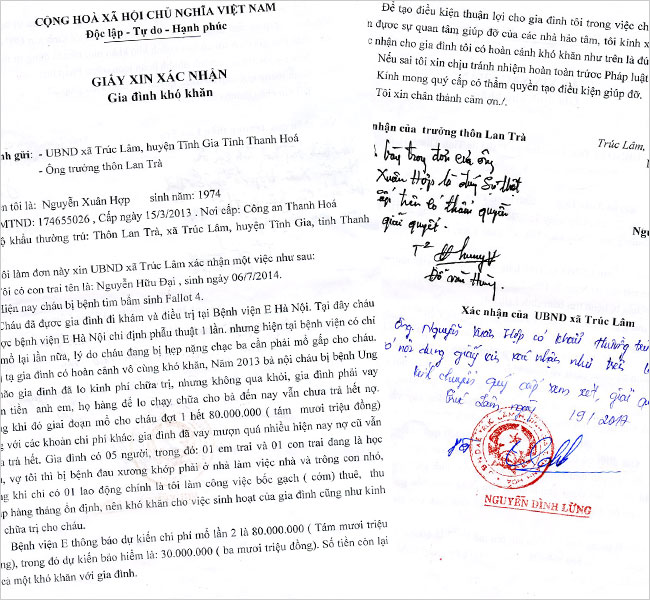 CỘNG HOÀ XÃ HỘI CHỦ NGHĨA VIỆT NAM
Độc lập - Tự do - Hạnh phúc
GIẤY XIN XÁC NHẬN
Gia đình khó khăn
nh gửi: - UBND xã Trúc Lâm, huyện Tĩnh Gia Tỉnh Thanh Hoá
- Ông trưởng thôn Lan Trà
n tôi là: Nguyễn Xuân Hợp sinh năm: 1974
MTND: 174655026 , Cấp ngày 15/3/2013 . Nơi cấp: Công an Thanh Hoá
ộ khẩu thường trú: Thôn Lan Trà, xã Trúc Lâm, huyện Tĩnh Gia, tỉnh Thanh
ôi làm đơn này xin UBND xã Trúc Lâm xác nhận một việc như sau:
Tôi có con trai tên là: Nguyễn Hữu Đại , sinh ngày 06/7/2014.
Hiện nay cháu bị bệnh tim bẩm sinh Fallot 4.
Cháu đã được gia đình đi khám và điều trị tại Bệnh viện E Hà Nội. Tại đây cháu
ợc bệnh viện E Hà Nội chỉ định phẫu thuật 1 lần. nhưng hiện tại bệnh viện có chỉ
mổ lại lần nữa, lý do cháu đang bị hẹp nặng chạc ba cần phải mổ gấp cho cháu.
tạ gia đình có hoàn cảnh vô cùng khó khăn, Năm 2013 bà nội cháu bị bệnh Ung
não gia đình đã lo kinh phí chữa trị, nhưng không qua khỏi, gia đình phải vay
n tiền anh em, họ hàng để lo chạy chữa cho bà đến nay vẫn chưa trả hết nợ.
ng khi đó giai đoạn mổ cho cháu đợt 1 hết 80.000.000 ( tám mươi triệu đồng)
g với các khoản chi phí khác. gia đình đã vay mượn quá nhiều hiện nay nợ cũ vẫn
a trả hết. Gia đình có 05 người, trong đó: 01 em trai và 01 con trai đang là học
, vợ tôi thì bị bệnh đau xương khớp phải ở nhà làm việc nhà và trông con nhỏ,
g khi chỉ có 01 lao động chính là tôi làm công việc bốc gạch ( cóm) thuê, thu
p hàng tháng ổn định, nên khó khăn cho việc sinh hoạt của gia đình cũng như kinh
chữa trị cho cháu.
Bệnh viện E thông báo dự kiến chi phí mổ lần 2 là 80.000.000 ( Tám mươi triệu
ng), trong đó dự kiến bảo hiểm là: 30.000.000 ( ba mươi triệu đồng). Số tiền còn lại
cả một khó khăn với gia đình.
Để tạo điều kiện thuận lợi cho gia đình tôi trong việc ch
n được sự quan tâm giúp đỡ của các nhà hảo tâm, tôi kính x
c nhận cho gia đình tôi có hoàn cảnh khó khăn như trên là đú
Nếu sai tôi xin chịu tránh nhiệm hoàn toàn trước Pháp luật
Kính mong quý cấp có thẩm quyền tạo điều kiện giúp đỡ.
Tôi xin chân thành cảm ơn./.
nhận của trưởng thôn Lan Trà
Trúc Lâm,
bày trong đơn của ông
Xuân Hợp là đúng Sự thật
cấp trên có thẩm quyền
giải quyết.
Ng
T²
Đỗ Văn Hùng
Xác nhận của UBND xã Trúc Lâm
Ông Nguyễn Xuân Hợp có khẩu thường trú
nội dung giấy xin xác nhận như trên là
chuyển quý cấp xem xét, giải qu
Trúc Lâm ngày 19/2017
NGUYỄN ĐÌNH LỪNG